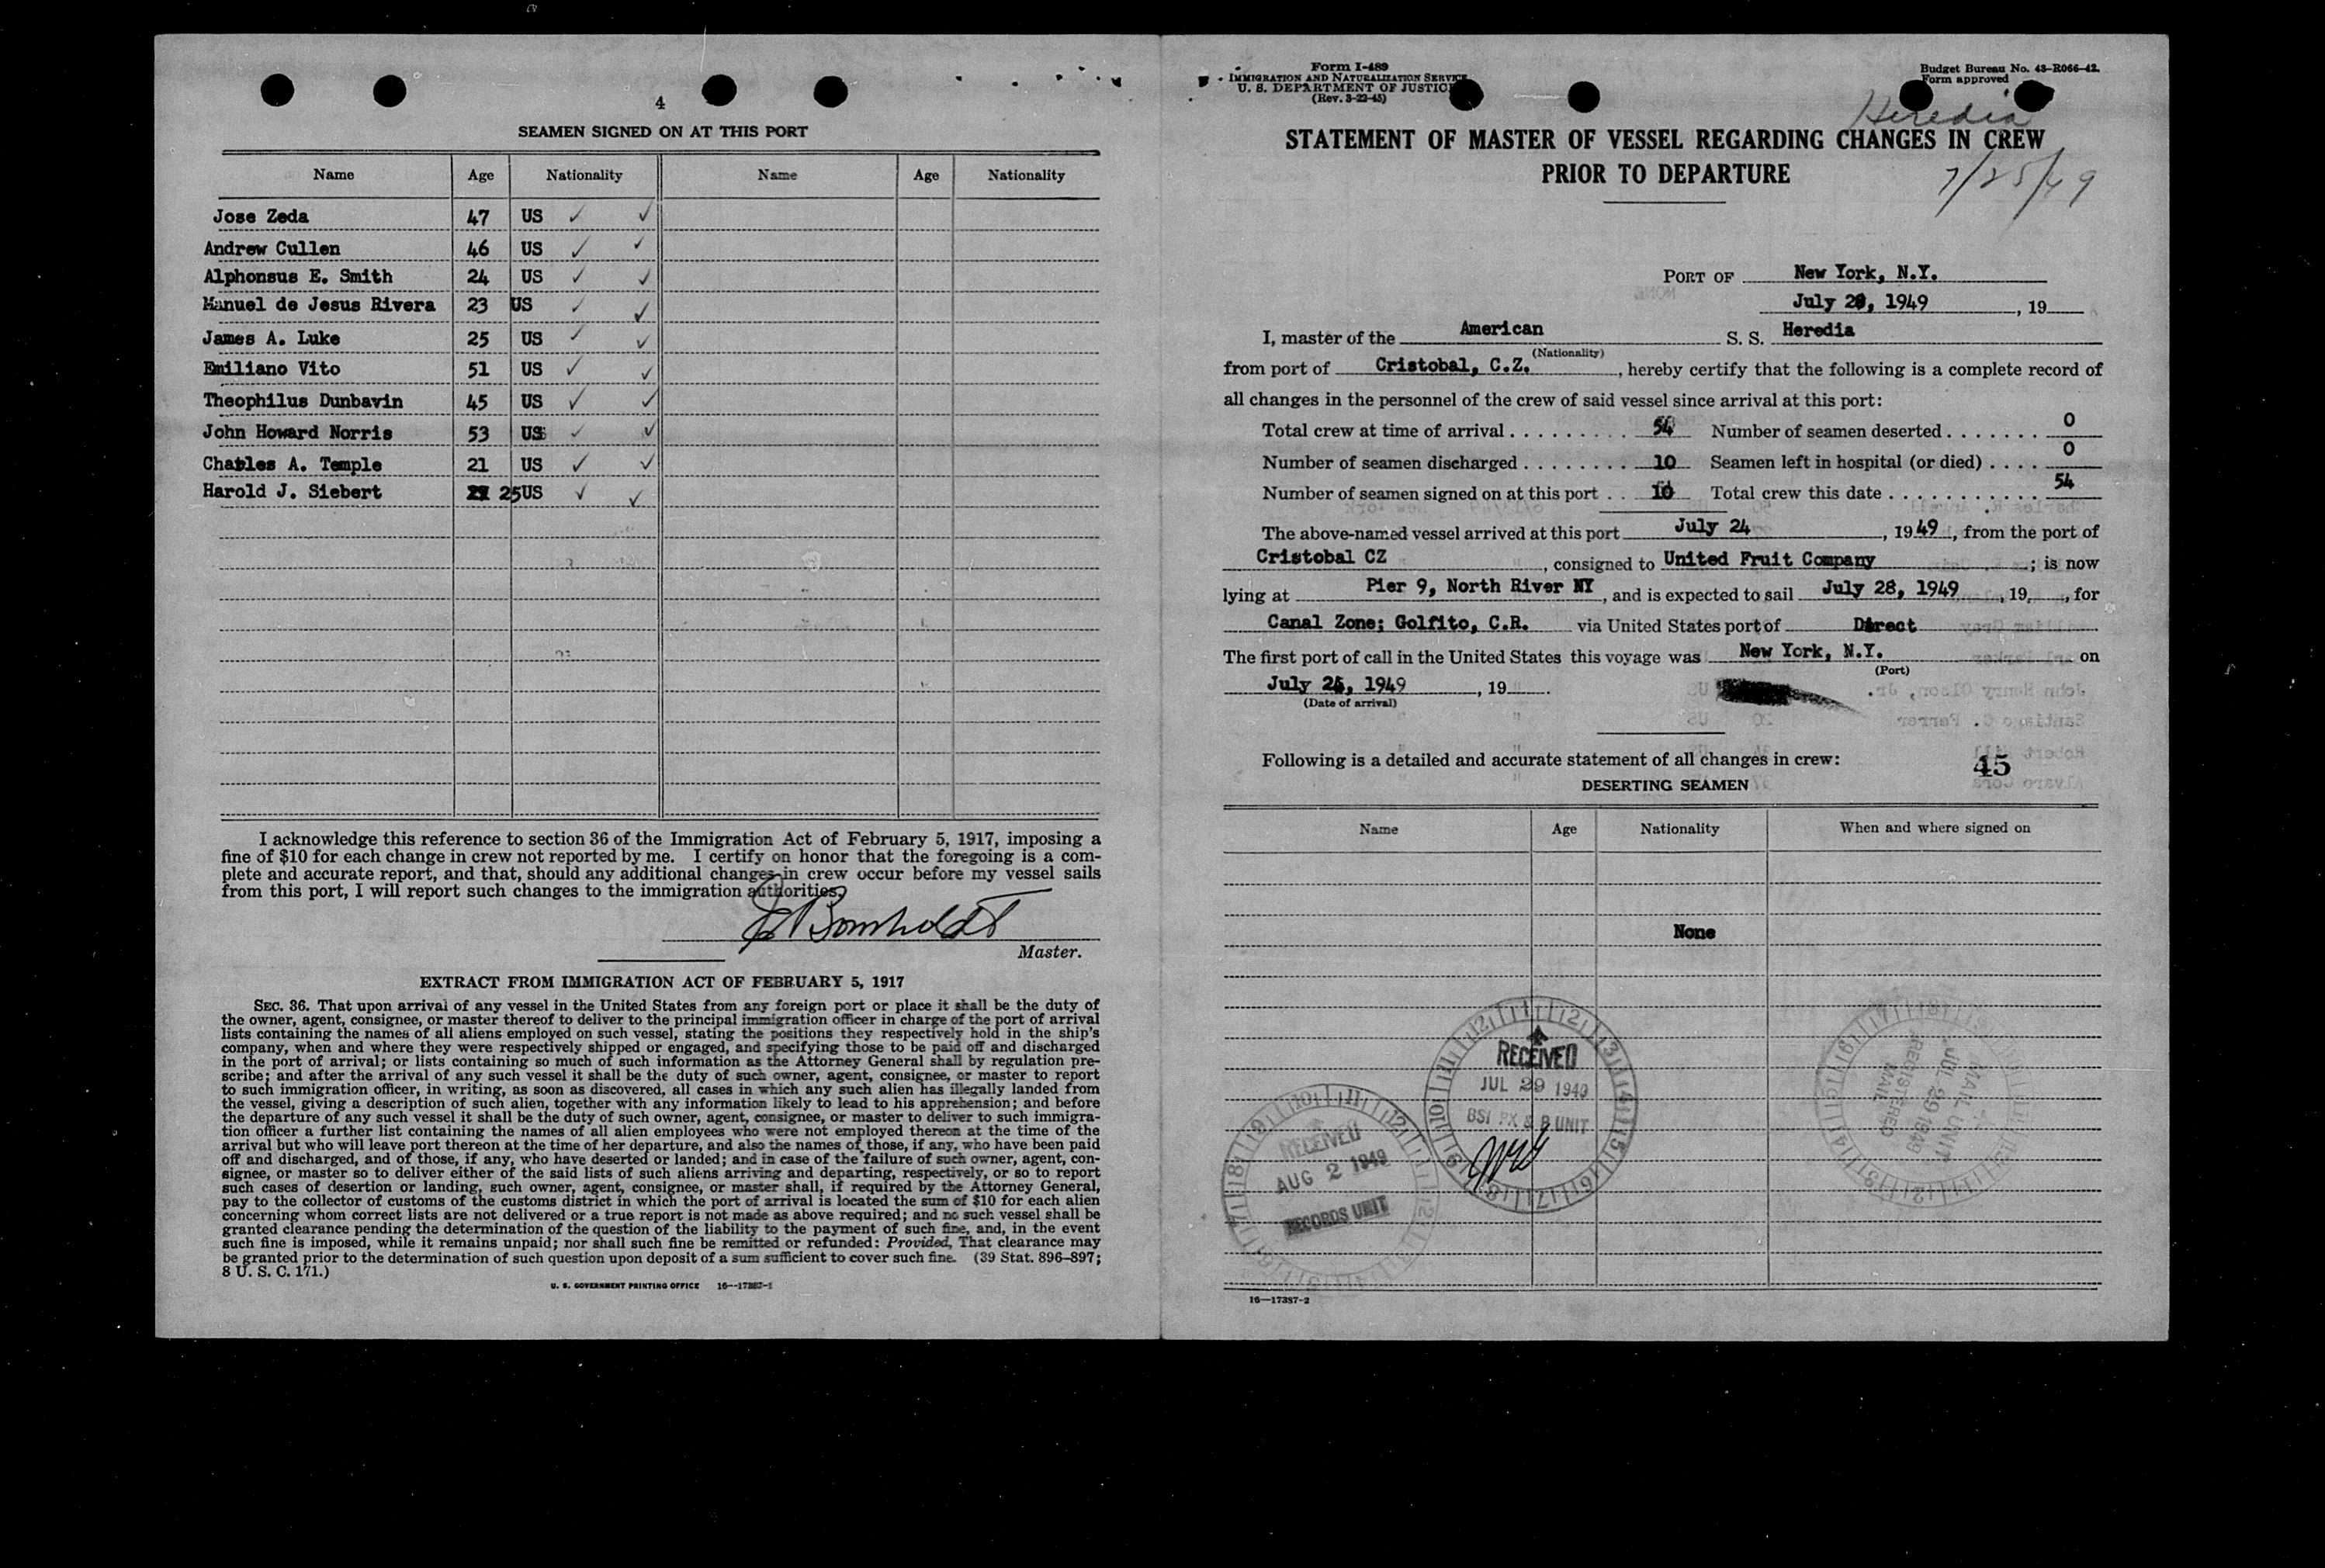 4
SEAMEN SIGNED ON AT THIS PORT
Name Age Nationality Name Age Nationality
Jose Zeda 47 US ✓ ✓
Andrew Cullen 46 US ✓ ✓
Alphonsus E. Smith 24 US ✓ ✓
Manuel de Jesus Rivera 23 US ✓ ✓
James A. Luke 25 US ✓ ✓
Emiliano Vito 51 US ✓ ✓
Theophilus Dunbavin 45 US ✓ ✓
John Howard Norris 53 US ✓ ✓
Charles A. Temple 21 US ✓ ✓
Harold J. Siebert 25 US ✓ ✓
I acknowledge this reference to section 36 of the Immigration Act of February 5, 1917, imposing a
fine of $10 for each change in crew not reported by me. I certify on honor that the foregoing is a com-
plete and accurate report, and that, should any additional changes in crew occur before my vessel sails
from this port, I will report such changes to the immigration authorities.
Master.
EXTRACT FROM IMMIGRATION ACT OF FEBRUARY 5, 1917
SEC. 36. That upon arrival of any vessel in the United States from any foreign port or place it shall be the duty of
the owner, agent, consignee, or master thereof to deliver to the principal immigration officer in charge of the port of arrival
lists containing the names of all aliens employed on such vessel, stating the positions they respectively hold in the ship's
company, when and where they were respectively shipped or engaged, and specifying those to be paid off and discharged
in the port of arrival; or lists containing so much of such information as the Attorney General shall by regulation pre-
scribe; and after the arrival of any such vessel it shall be the duty of such owner, agent, consignee, or master to report
to such immigration officer, in writing, as soon as discovered, all cases in which any such alien has illegally landed from
the vessel, giving a description of such alien, together with any information likely to lead to his apprehension; and before
the departure of any such vessel it shall be the duty of such owner, agent, consignee, or master to deliver to such immigra-
tion officer a further list containing the names of all alien employees who were not employed thereon at the time of the
arrival but who will leave port thereon at the time of her departure, and also the names of those, if any, who have been paid
off and discharged, and of those, if any, who have deserted or landed; and in case of the failure of such owner, agent, con-
signee, or master so to deliver either of the said lists of such aliens arriving and departing, respectively, or so to report
such cases of desertion or landing, such owner, agent, consignee, or master shall, if required by the Attorney General,
pay to the collector of customs of the customs district in which the port of arrival is located the sum of $10 for each alien
concerning whom correct lists are not delivered or a true report is not made as above required; and no such vessel shall be
granted clearance pending the determination of the question of the liability to the payment of such fine, and, in the event
such fine is imposed, while it remains unpaid; nor shall such fine be remitted or refunded: Provided, That clearance may
be granted prior to the determination of such question upon deposit of a sum sufficient to cover such fine. (39 Stat. 896–897;
8 U. S. C. 171.)
U. S. GOVERNMENT PRINTING OFFICE 16—17387-1
Form I-489
IMMIGRATION AND NATURALIZATION SERVICE
U. S. DEPARTMENT OF JUSTICE
(Rev. 3-22-45)
Budget Bureau No. 43-R066-42.
Form approved
Heredia
STATEMENT OF MASTER OF VESSEL REGARDING CHANGES IN CREW
PRIOR TO DEPARTURE
7/25/49
PORT OF New York, N.Y.
July 28, 1949, 19
I, master of the American S. S. Heredia
(Nationality)
from port of Cristobal, C.Z., hereby certify that the following is a complete record of
all changes in the personnel of the crew of said vessel since arrival at this port:
Total crew at time of arrival 54 Number of seamen deserted 0
Number of seamen discharged 10 Seamen left in hospital (or died) 0
Number of seamen signed on at this port 10 Total crew this date 54
The above-named vessel arrived at this port July 24, 1949, from the port of
Cristobal CZ, consigned to United Fruit Company; is now
lying at Pier 9, North River NY, and is expected to sail July 28, 1949, 19, for
Canal Zone; Golfito, C.R. via United States port of Direct
The first port of call in the United States this voyage was New York, N.Y. on
(Port)
July 1949, 19
(Date of arrival)
Following is a detailed and accurate statement of all changes in crew:
45
DESERTING SEAMEN
Name Age Nationality When and where signed on
None
RECEIVED
JUL 29 1949
BSI PX & B UNIT
RECEIVED
AUG 2 1949
RECORDS UNIT
MAIL UNIT
JUL 29 1949
REGISTERED
MAIL
16—17387-2